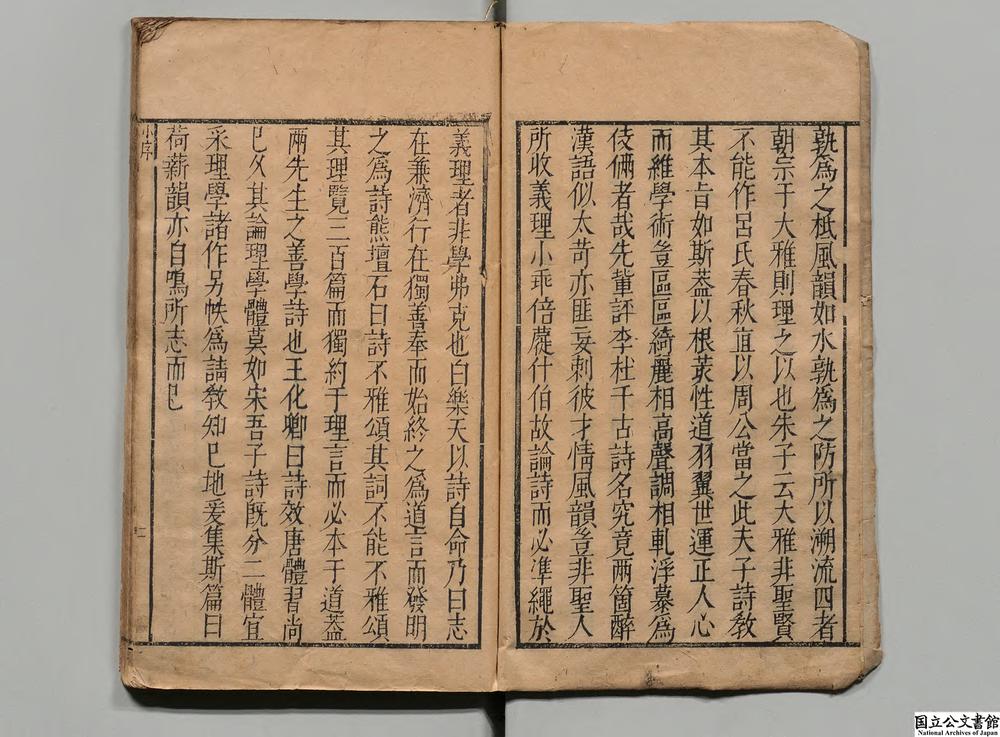 孰為之柢風韻如水孰為之防所以溯流四者
朝宗于大雅則理之以也朱子云大雅非聖賢
不能作呂氏春秋直以周公當之此夫子詩教
其本旨如斯葢以根荄性道羽翼世運正人心
而維學術豈區區綺麗相高聲調相軋浮慕為
伎倆者哉先輩評李杜千古詩名究竟兩箇醉
漢語似太苛亦匪妄刺彼才情風韻豈非聖人
所收義理小乖倍蓰什伯故論詩而必準繩於
義理者非學弗克也白樂天以詩自命乃曰志
在兼濟行在獨善奉而始終之為道言而發明
之為詩熊壇石曰詩不雅頌其詞不能不雅頌
其理覽三百篇而獨約于理言而必本于道葢
兩先生之善學詩也王化卿曰詩效唐體習尚
已久其論理學體莫如宋吾子詩旣分二體宜
采理學諸作另帙為請教知己地爰集斯篇曰
荷薪韻亦自鳴所志而已
小序
二
国立公文書館
National Archives of Japan